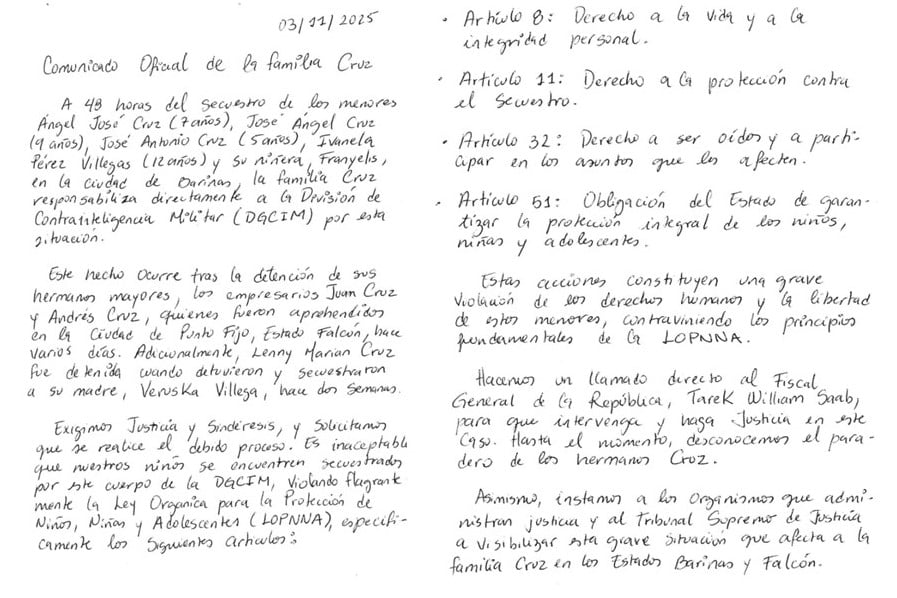 03/11/2025
Comunicado Oficial de la familia Cruz
A 48 horas del secuestro de los menores
Ángel José Cruz (7 años), José Ángel Cruz
(9 años), José Antonio Cruz (5 años), Ivanela
Pérez Villegas (12 años) y su niñera, Franyelis,
en la ciudad de Barinas, la familia Cruz
responsabiliza directamente a la División de
Contrainteligencia Militar (DGCIM) por esta
situación.
Este hecho ocurre tras la detención de sus
hermanos mayores, los empresarios Juan Cruz
y Andrés Cruz, quienes fueron aprehendidos
en la ciudad de Punto Fijo, Estado Falcón, hace
varios días. Adicionalmente, Lenny Marian Cruz
fue detenida cuando detuvieron y secuestraron
a su madre, Veruska Villega, hace dos semanas.
Exigimos Justicia y Sindéresis, y Solicitamos
que se realice el debido proceso. Es inaceptable
que nuestros niños se encuentren secuestrados
por este cuerpo de la DGCIM, Violando flagrante
mente la Ley Organica para la Protección de
Niños, Niñas y Adolescentes (LOPNNA), específi-
camente los siguientes artículos:
• Artículo 8: Derecho a la vida y a la
integridad personal.
• Artículo 11: Derecho a la protección contra
el secuestro.
• Artículo 32: Derecho a ser oídos y a parti-
cipar en los asuntos que les afecten.
• Artículo 51: Obligación del Estado de garan-
tizar la protección integral de los niños,
niñas y adolescentes.
Estas acciones constituyen una grave
violación de los derechos humanos y la libertad
de estos menores, contraviniendo los principios
fundamentales de la LOPNNA.
Hacemos un llamado directo al Fiscal
General de la República, Tarek William Saab,
para que intervenga y haga Justicia en este
Caso. Hasta el momento, desconocemos el para-
dero de los hermanos Cruz.
Asimismo, instamos a los Organismos que admi-
nistran justicia y al Tribunal Supremo de Justicia
a visibilizar esta grave situación que afecta a la
familia Cruz en los Estados Barinas y Falcón.